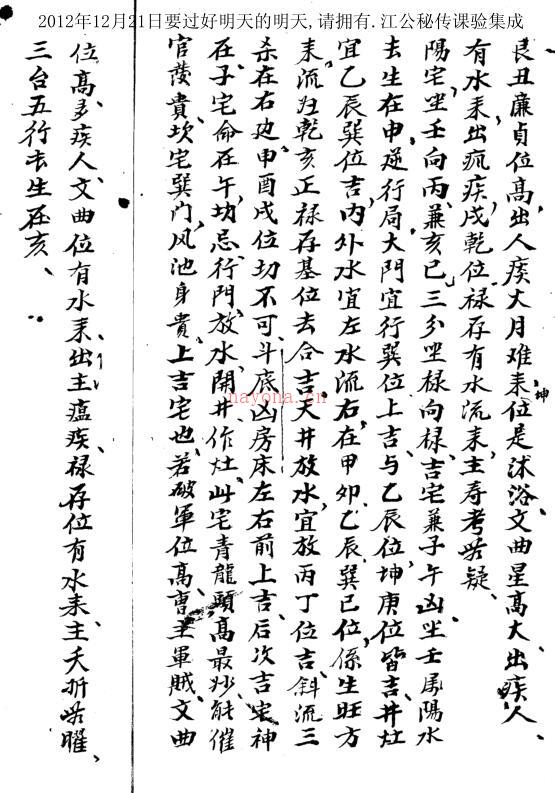 2012年12月21日要过好明天的明天,请拥有.江公秘传课验集成
艮丑廉貞位高出人痰大月难耒位是沐浴文曲星高大出疾人、
坤
有水耒出疯疾戌乾位禄存有水流耒主寿考無疑、
陽宅坐壬向丙兼亥巳三分坐禄向禄吉宅兼子午凶坐壬属陽水
去生在申逆行局大門宜行巽位上吉与乙辰位坤庚位皆吉井灶
宜乙辰巽位吉内外水宜左水流右在甲卯乙辰巽巳位係生旺方
耒流归乾亥正禄存基位去合吉天井放水宜放丙丁位吉斜流三
杀在右边申酉戌位切不可斗底凶房床左右前上吉后次吉宅神
在子宅命在午切忌行門放水開井作灶此宅青龍頭高最妙能催
官蔭貴坎宅巽门风池身貴上吉宅也若破軍位高曹主軍賊文曲
位高多疾人文曲位有水耒出主瘟疾禄存位有水耒主夭折無曜、
三台五行長生在亥、
nayona.cn